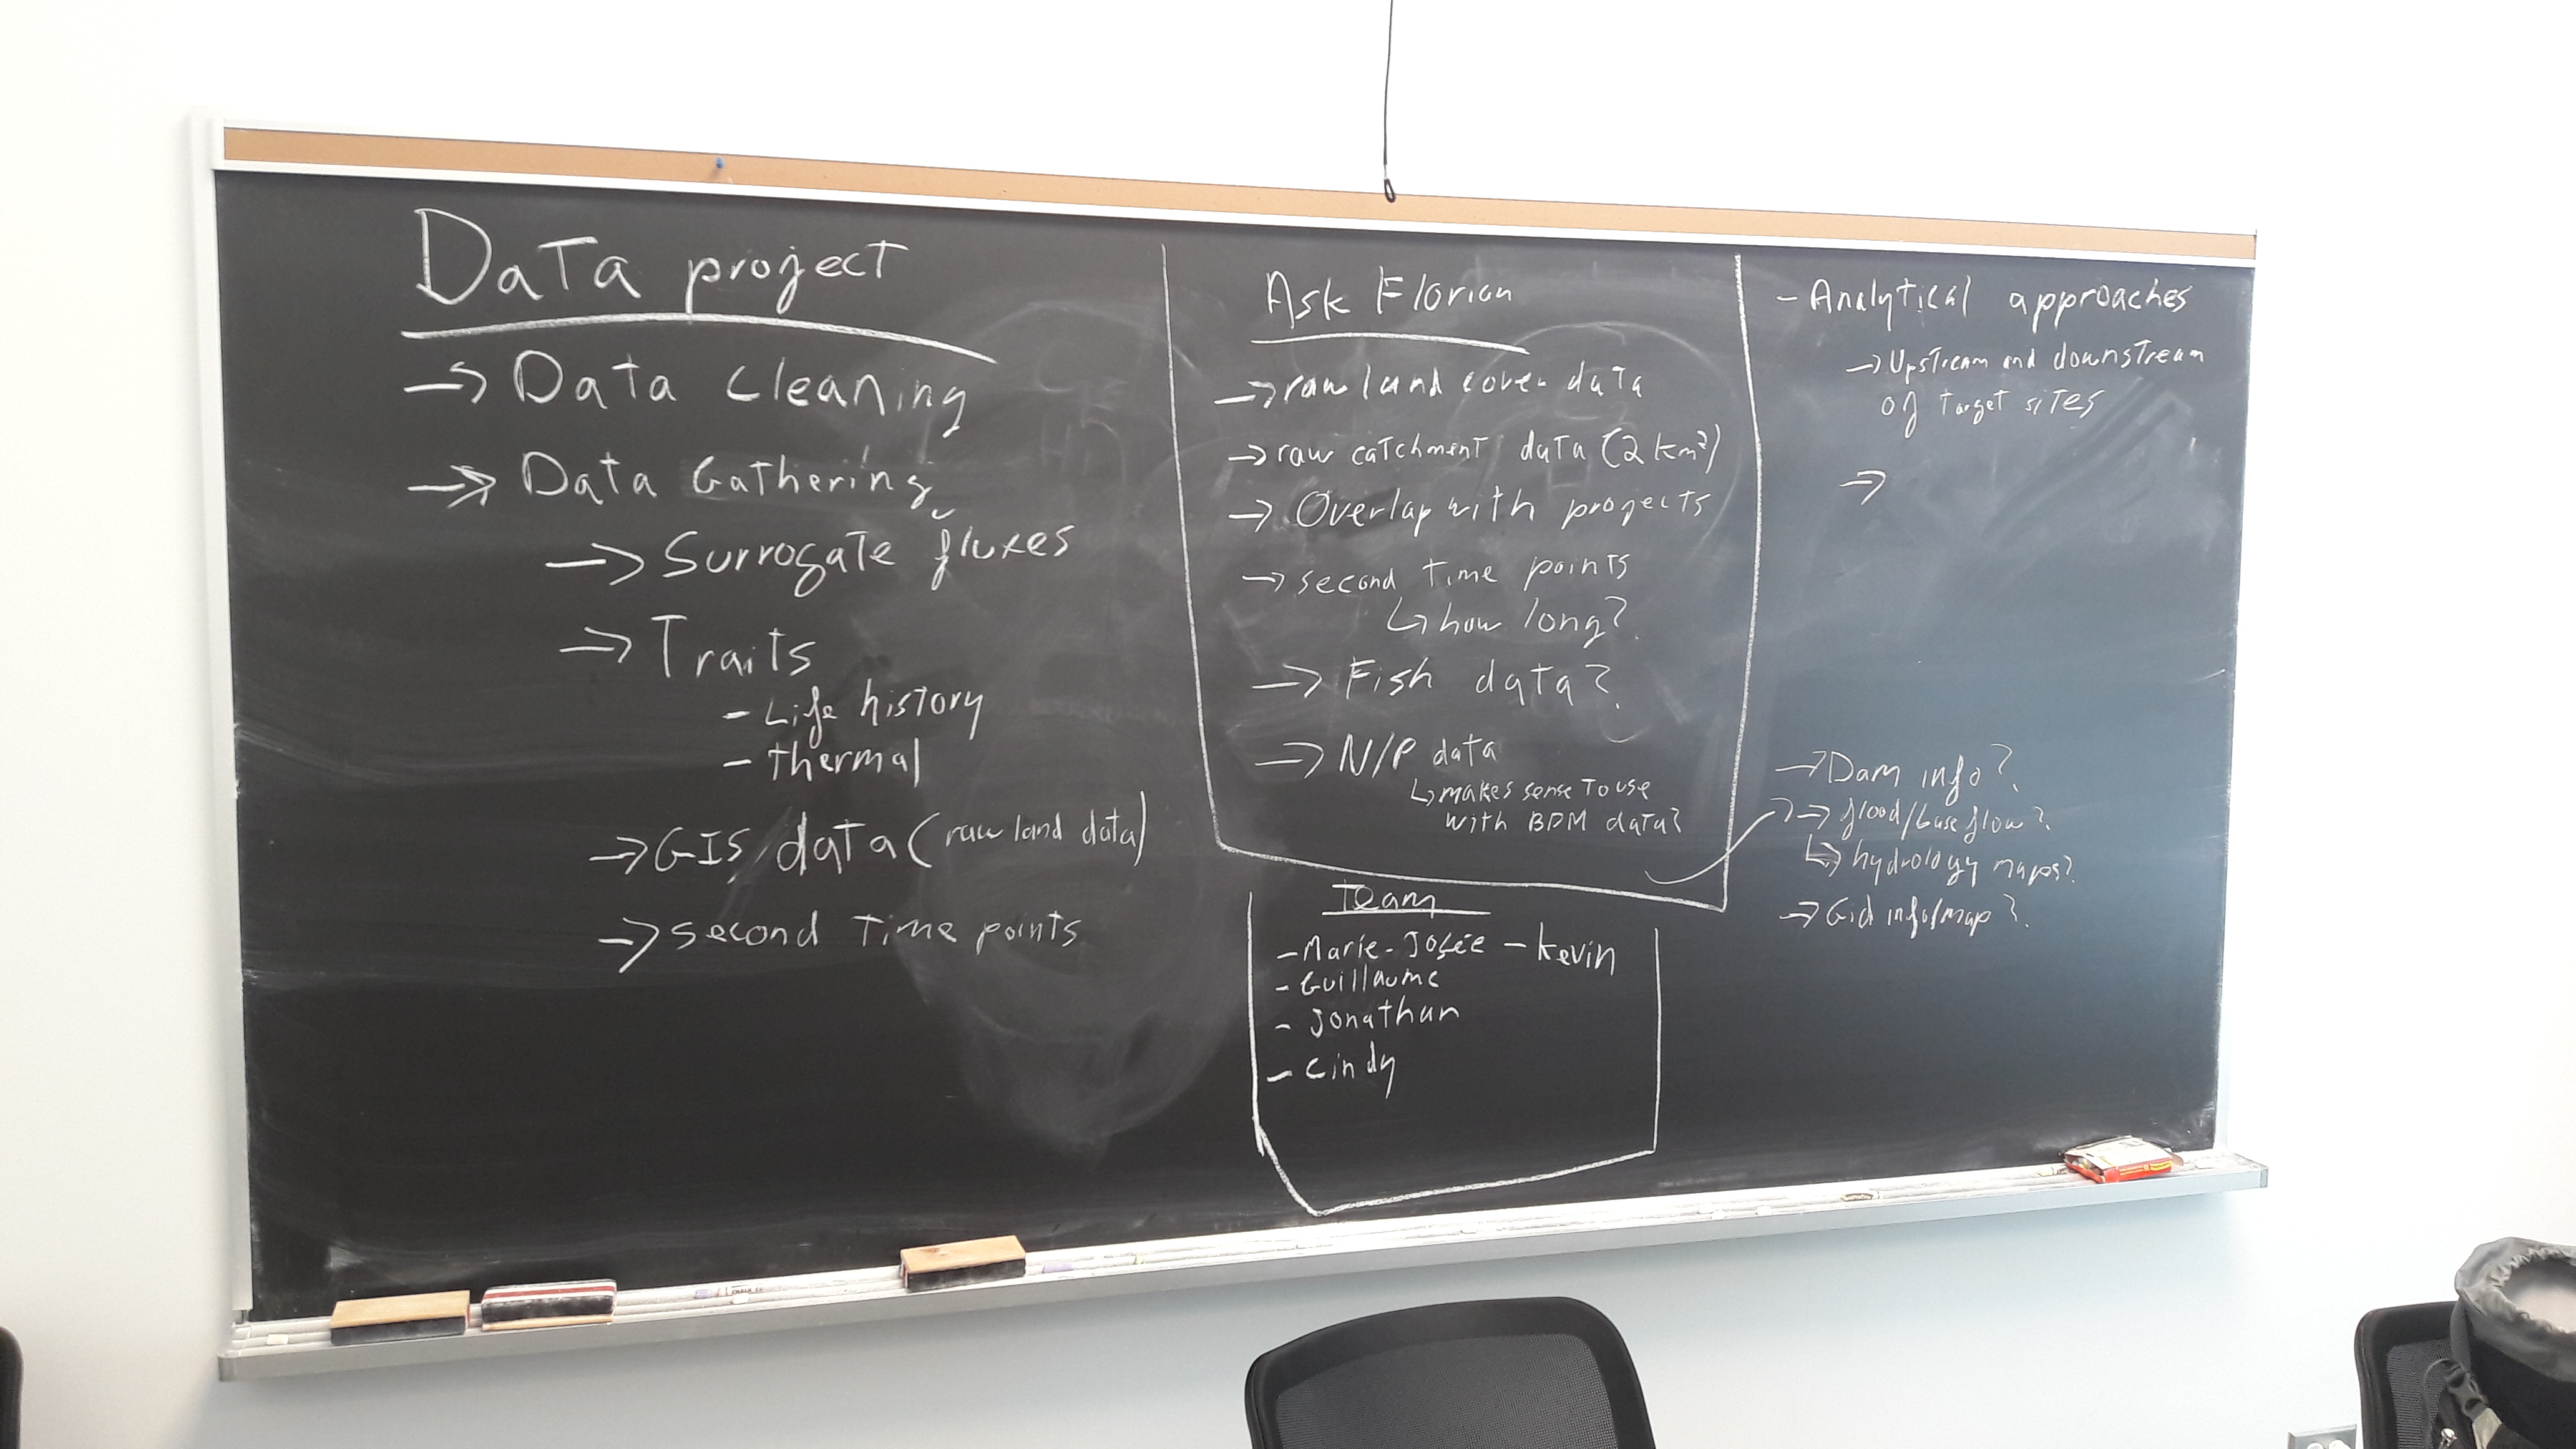 Data project
→ Data cleaning
→ Data Gathering
→ Surrogate fluxes
→ Traits
- Life history
- thermal
→ GIS data (raw land data)
→ second time points
Ask Florian
→ raw land cover data
→ raw catchment data (2 km²)
→ Overlap with projects
→ second time points
↳ how long?
→ Fish data?
→ N/P data
↳ makes sense to use
with BDM data?
Team
- Marie-Josée - Kevin
- Guillaume
- Jonathan
- Cindy
- Analytical approaches
→ Upstream and downstream
of target sites
→
→ Dam info?
→ flood/base flow?
↳ hydrology maps?
→ info/map?